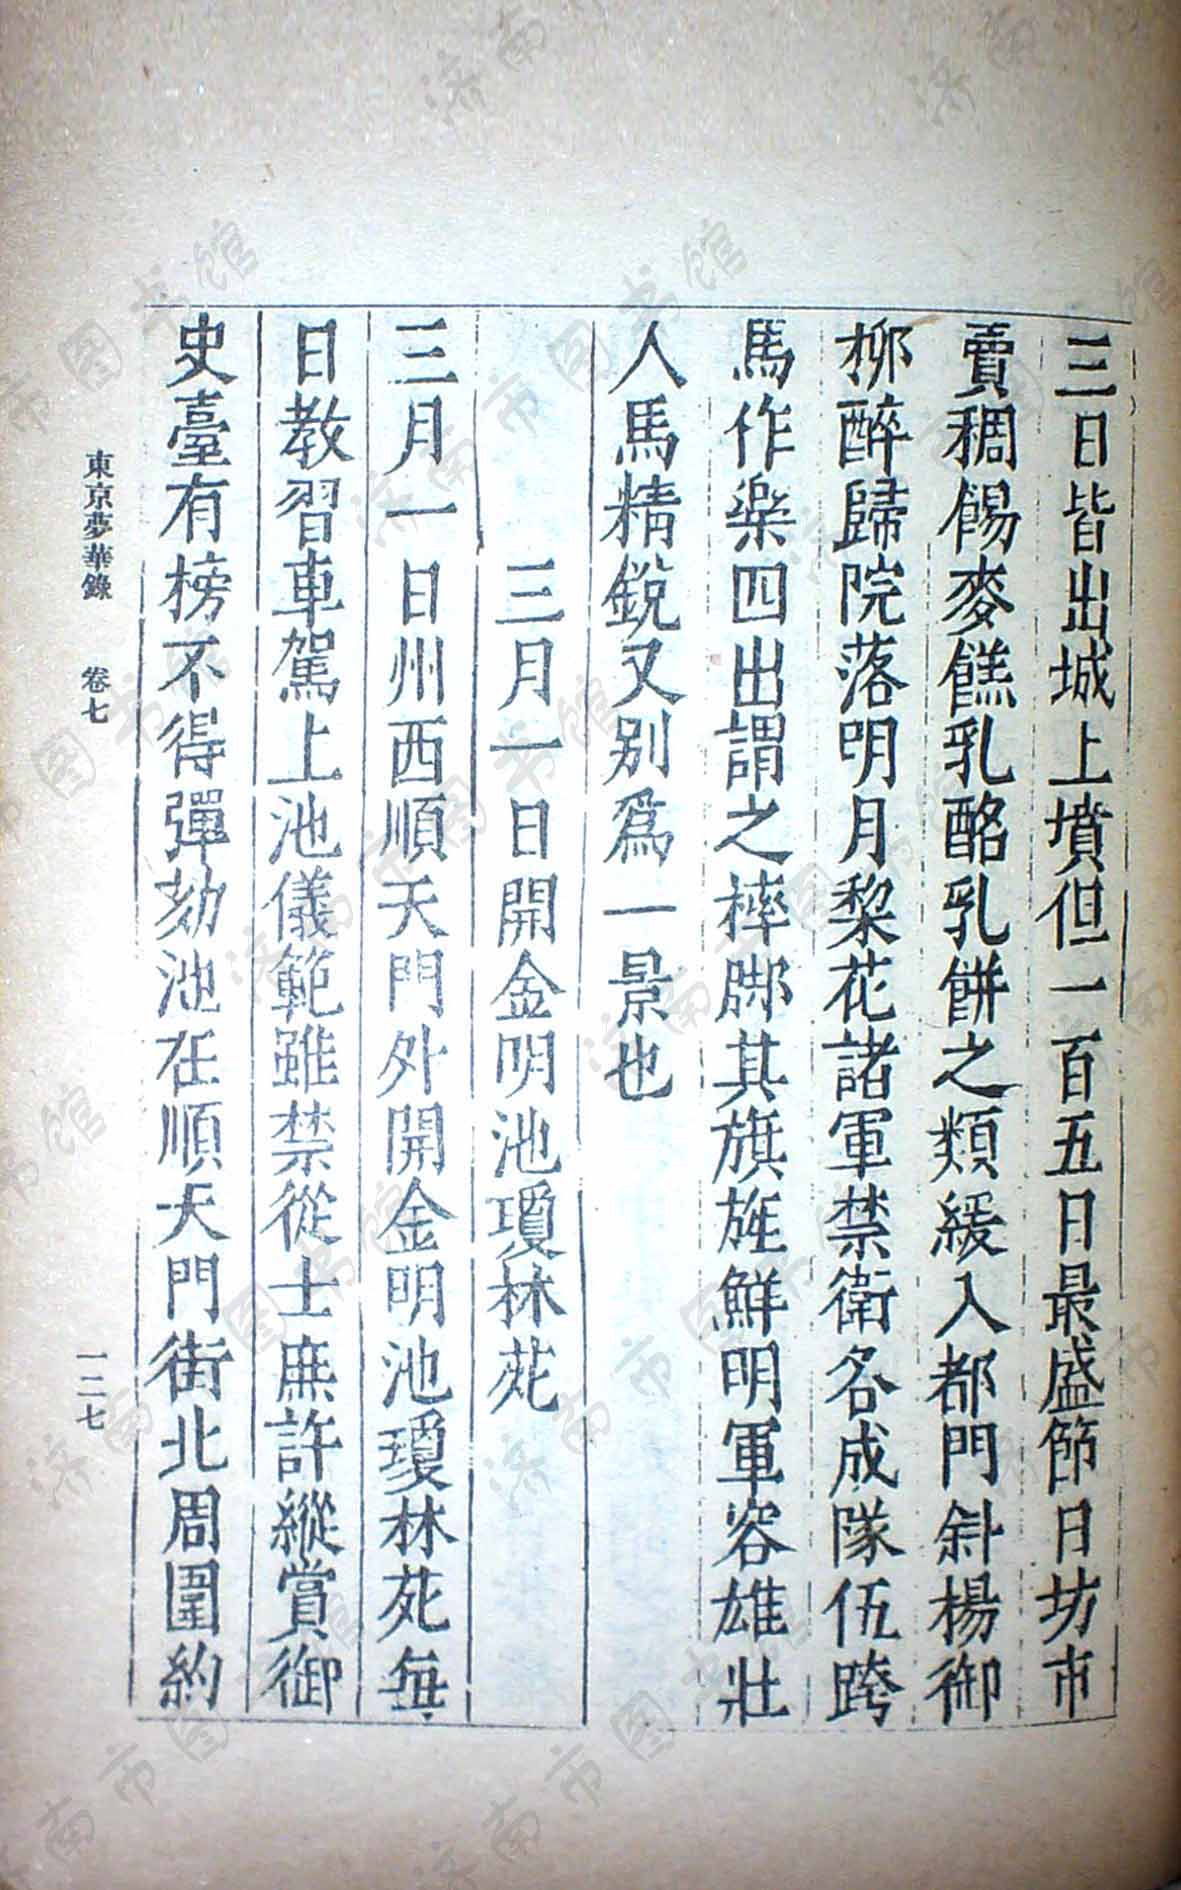 三日皆出城上墳但一百五日最盛節日坊市
賣稠餳麥餻乳酪乳餅之類緩入都門斜楊御
柳醉歸院落明月棃花諸軍禁衛各成隊伍跨
馬作樂四出謂之摔脚其旗旌鮮明軍容雄壯
人馬精銳又別爲一景也
三月一日開金明池瓊林苑
三月一日州西順天門外開金明池瓊林苑每
日教習車駕上池儀範雖禁從士庶許縱賞御
史臺有榜不得彈劾池在順天門街北周圍約
東京夢華錄 卷七 一二七
济南市图书馆